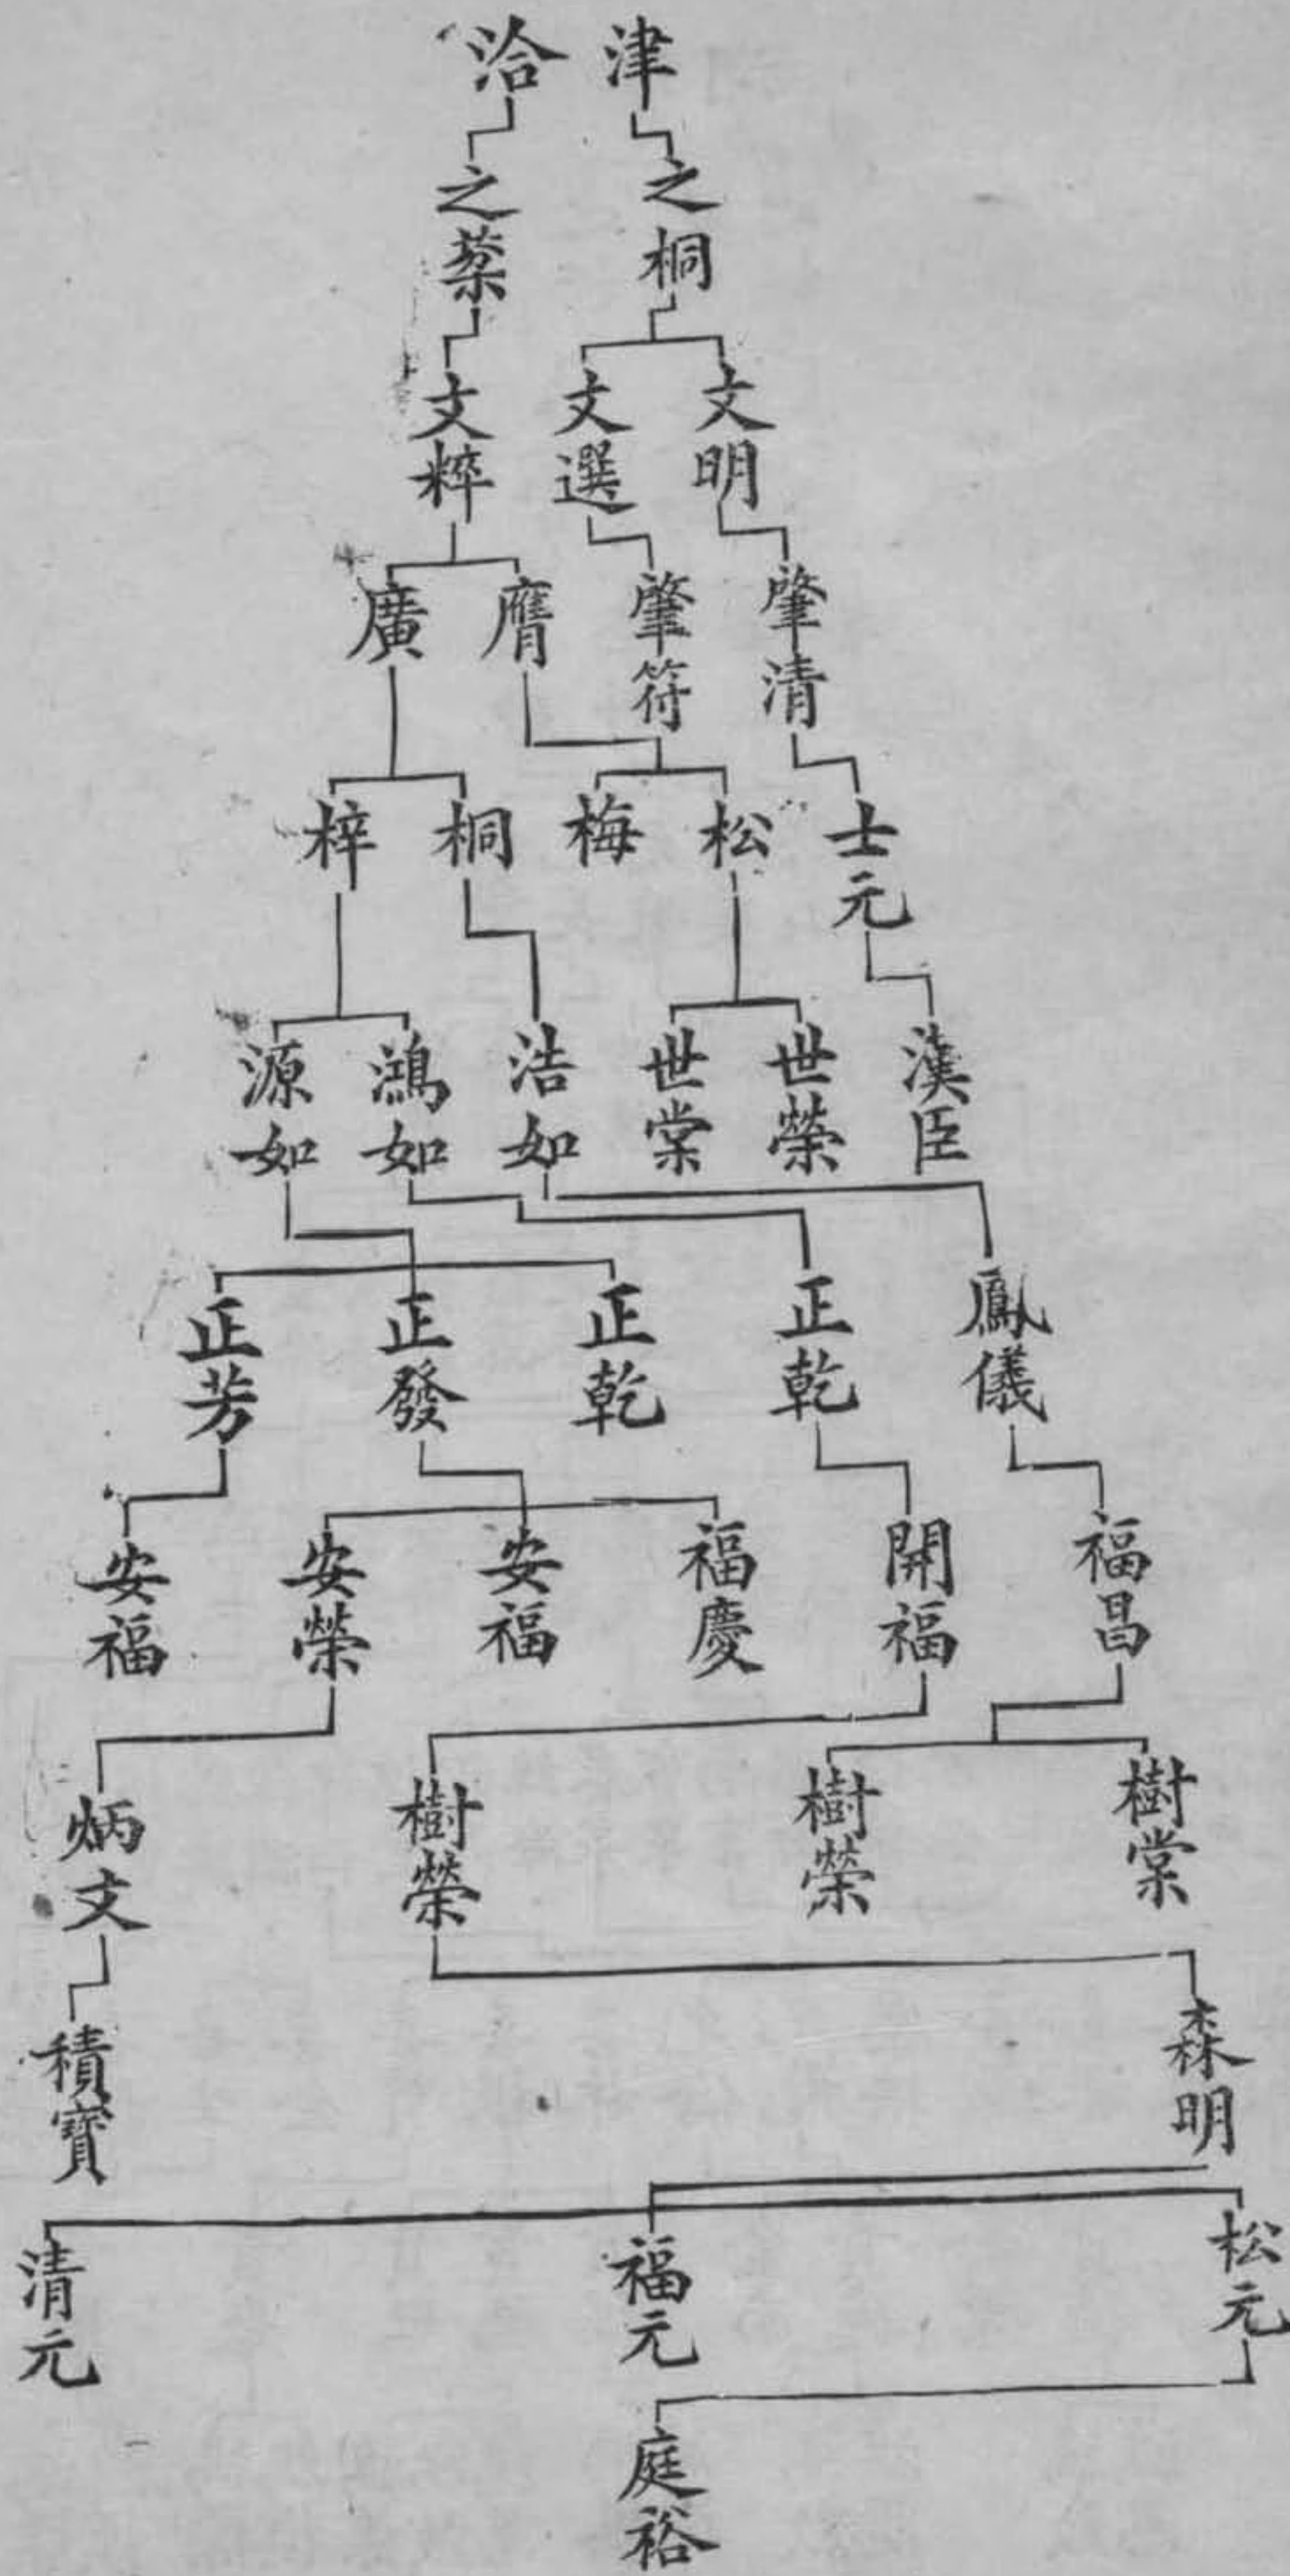 津 洽
之桐 之蔾
文明 文選 文粹
肇清 肇符 膺 廣
士元 松 梅 桐 梓
漢臣 世榮 世棠 浩如 鴻如 源如
鳳儀 正乾 正乾 正發 正芳
福昌 開福 福慶 安福 安榮 安福
樹棠 樹榮 樹榮 炳文
森明 積寶
松元 福元 清元
庭裕